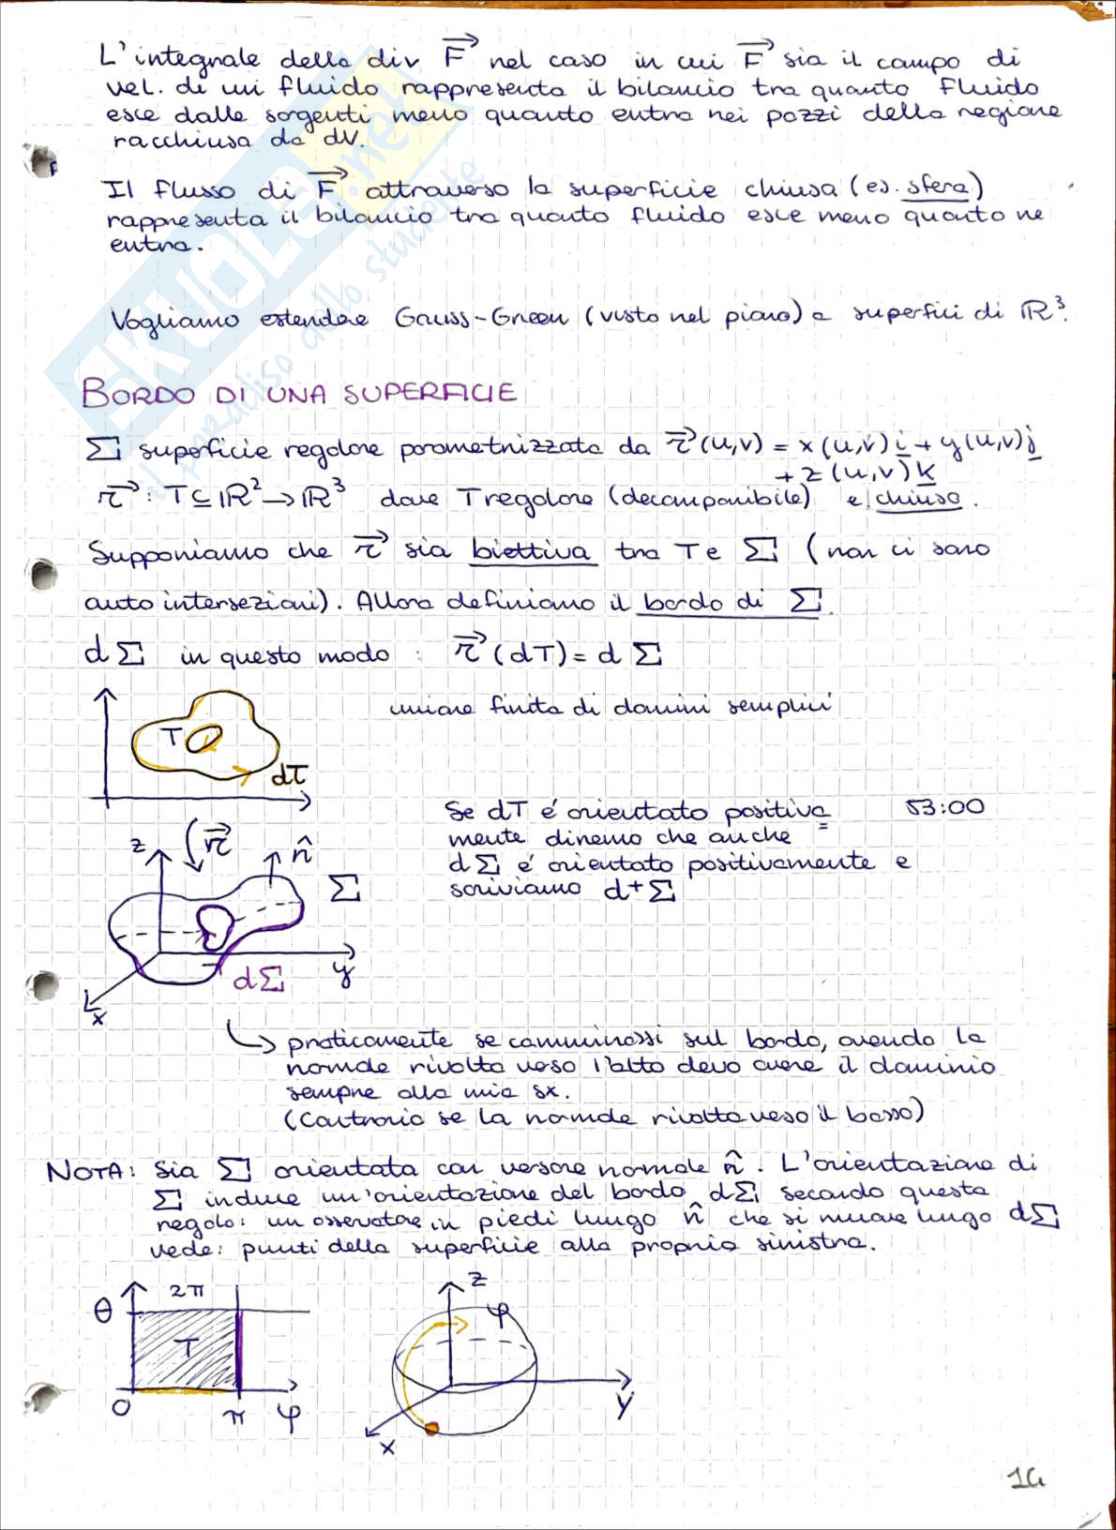 L'integrale della div F nel caso in cui F sia il campo di
vel. di un fluido rappresenta il bilancio tra quanto fluido
esce dalle sorgenti meno quanto entra nei pozzi della regione
racchiusa da dV.
Il flusso di F attraverso la superficie chiusa (es. sfera)
rappresenta il bilancio tra quanto fluido esce meno quanto ne
entra.
Vogliamo estendere Gauss-Green (visto nel piano) a superfici di ℝ³.
BORDO DI UNA SUPERFICIE
Σ superficie regolare parametrizzata da r⃗(u,v) = x(u,v)i + y(u,v)j
+ z(u,v)k
r⃗: T⊆ℝ²→ℝ³ dove T regolare (decomponibile) e chiuso.
Supponiamo che r⃗ sia biettiva tra T e Σ (non ci sono
auto intersezioni). Allora definiamo il bordo di Σ.
dΣ in questo modo: r⃗(dT) = dΣ
unione finita di domini semplici
T
dT
Se dT é orientato positiva=
53:00
mente diremo che anche
dΣ é orientato positivamente e
scriviamo d⁺Σ
r⃗
z
n̂
Σ
dΣ
y
x
↳ praticamente se camminassi sul bordo, avendo la
normale rivolta verso l'alto devo avere il dominio
sempre alla mia sx.
(Contrario se la normale rivolta verso il basso)
NOTA: Sia Σ orientata con versore normale n̂. L'orientazione di
Σ induce un'orientazione del bordo dΣ secondo questa
regola: un osservatore in piedi lungo n̂ che si muove lungo dΣ
vede: punti della superficie alla propria sinistra.
θ
2π
T
0
π
φ
z
φ
y
x
14
SKUOLA.net
il paradiso dello studente